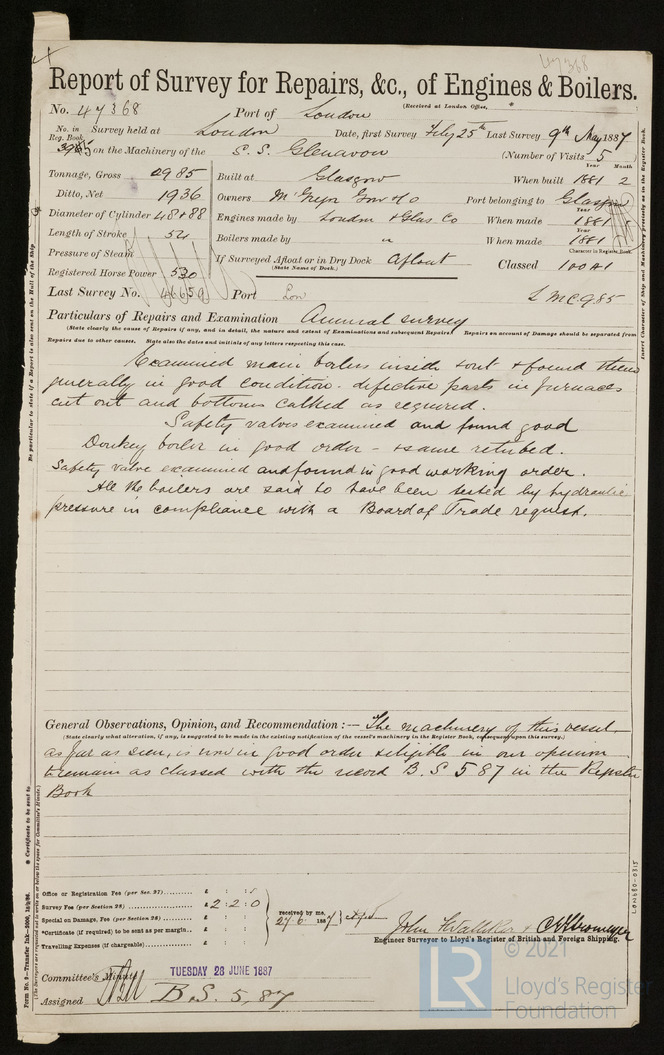 47368
Report of Survey for Repairs, &c., of Engines & Boilers.
(Received at London Office,
No. 47368 Port of London
No. in Reg. Book. Survey held at London Date, first Survey Feby 25th Last Survey 9th May 1887
on the Machinery of the S.S. Glenavon (Number of Visits 5
Tonnage, Gross 2985 Built at Glasgow When built 1881 Year 2 Month
Ditto, Net 1936 Owners McGregor Gow & Co Port belonging to Glasgow
Diameter of Cylinder 48 & 88 Engines made by London & Glas Co When made 1881 Year
Length of Stroke 54 Boilers made by " When made 1881 Year
Pressure of Steam If Surveyed Afloat or in Dry Dock Afloat Classed 100A1
(State Name of Dock.) Character in Register Book
Registered Horse Power 530
Last Survey No. 46659 Port Lon LMC 9,85
Particulars of Repairs and Examination Annual survey
(State clearly the cause of Repairs if any, and in detail, the nature and extent of Examinations and subsequent Repairs. Repairs on account of Damage should be separated from
Repairs due to other causes. State also the dates and initials of any letters respecting this case.
Examined main boilers inside & out & found them
generally in good condition - defective parts in furnaces
cut out and bottoms calked as required.
Safety valves examined and found good
Donkey boiler in good order - & same retubed.
Safety valve examined and found in good working order.
All the boilers are said to have been tested by hydraulic
pressure in compliance with a Board of Trade request.
General Observations, Opinion, and Recommendation :— The machinery of this vessel,
(State clearly what alteration, if any, is suggested to be made in the existing notification of the vessel's machinery in the Register Book, consequent upon this survey.)
as far as seen, is now in good order & eligible in our opinion
to remain as classed with the record B.S 5 87 in the Register
Book
Office or Registration Fee (per Sec. 27) £ : :
Survey Fee (per Section 28) £ 2 : 2 : 0
Special on Damage, Fee (per Section 28) £ : :
*Certificate (if required) to be sent as per margin £ : :
Travelling Expenses (if chargeable) £ : :
received by me,
27.6. 1887
Engineer Surveyor to Lloyd's Register of British and Foreign Shipping.
Committee's Minute TUESDAY 28 JUNE 1887
Assigned B.S. 5,87
Be particular to state if a Report is also sent on the Hull of the Ship
Insert Character of Ship and Machinery precisely as in the Register Book.
Certificate to be sent to
LON680-0315
© 2021
LR
Lloyd's Register
Foundation